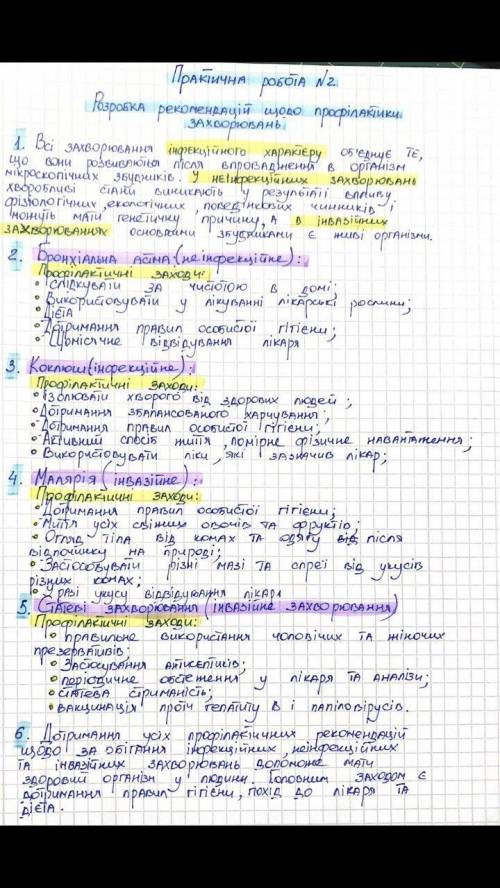 Практична робота №2
Розробка рекомендацій щодо профілактики
захворювань.
1. Всі захворювання інфекційного характеру об'єднує те,
що вони розвиваються після впровадження в організм
мікроскопічних збудників. У неінфекційних захворювань
хворобливі стани виникають у результаті впливу
фізіологічних, екологічних, поведінкових чинників і
можуть мати генетичну причину, а в інвазійних
захворюваннях основними збудниками є живі організми.
2. Бронхіальна астма (неінфекційне):
Профілактичні заходи:
• Слідкувати за чистотою в домі;
• Використовувати у лікуванні лікарські рослини;
• Дієта
• Дотримання правил особистої гігієни;
• Щомісячне відвідування лікаря
3. Коклюш (інфекційне):
Профілактичні заходи:
• Ізолювати хворого від здорових людей;
• Дотримання збалансованого харчування;
• Дотримання правил особистої гігієни;
• Активний спосіб життя, помірне фізичне навантаження;
• Використовувати ліки, які зазначив лікар;
4. Малярія (інвазійне):
Профілактичні заходи:
• Дотримання правил особистої гігієни;
• Миття усіх свіжих овочів та фруктів;
• Огляд тіла від комах та одягу від після
відпочинку на природі;
• Застосовувати різні мазі та спреї від укусів
різних комах;
• В разі укусу відвідування лікаря
5. Статеві захворювання (інвазійне захворювання)
Профілактичні заходи:
• правильне використання чоловічих та жіночих
презервативів;
• Застосування антисептиків;
• періодичне обстеження у лікаря та аналізи;
• статева стриманість;
• вакцинація проти гепатиту В і папіловірусів.
6. Дотримання усіх профілактичних рекомендацій
щодо запобігання інфекційних, неінфекційних
та інвазійних захворювань допоможе мати
здоровий організм у людини. Головним заходом є
дотримання правил гігієни, похід до лікаря та
дієта.